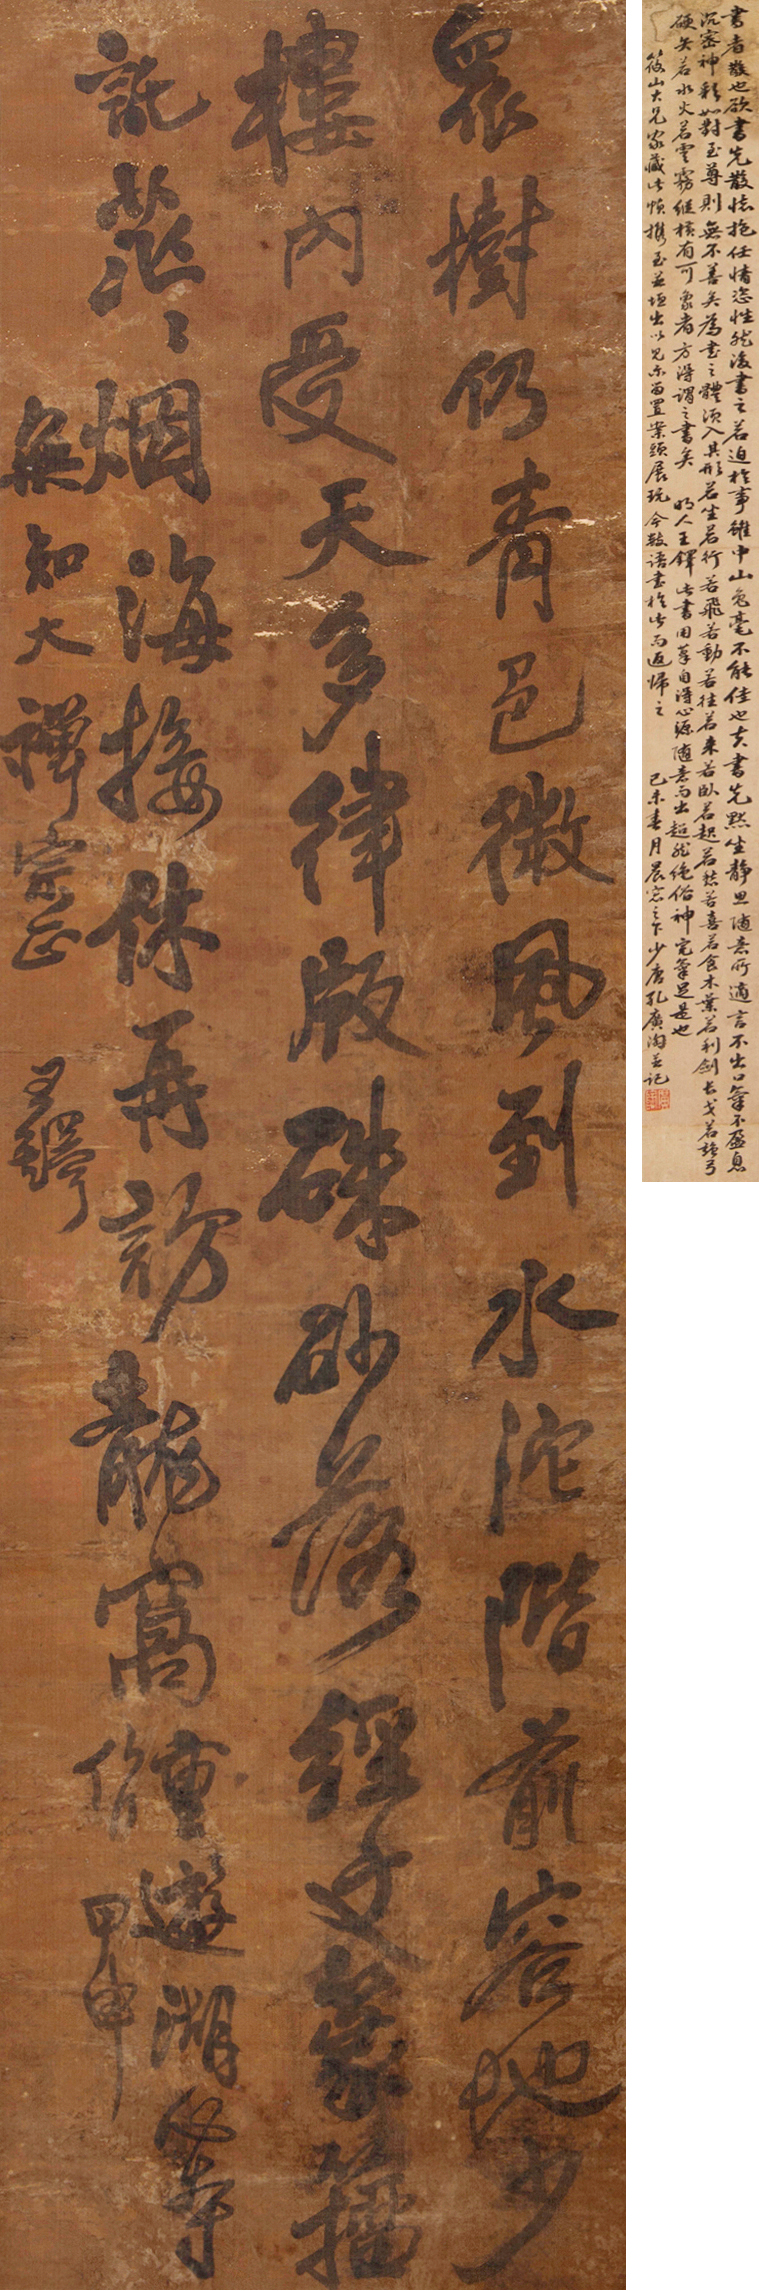 書者散也欲書先散懷抱任情恣性然後書之若迫於事雖中山兔毫不能佳也夫書先默坐靜思隨意所適言不出口氣不盈息
沉密神彩如對至尊則無不善矣為書之體須入其形若坐若行若飛若動若往若來若臥若起若愁若喜若食木葉若利劍長戈若強弓
硬矢若水火若雲霧縱橫有可象者方得謂之書矣 明人王鐸此書用筆自得心源隨意而出超然絕俗神完氣足是也
筱山大兄家藏此幀攜至並垣出以見示留置案頭展玩今敬語書於此而返歸之 己未春月晨窓之下少唐孔廣陶並記
眾樹仍青邑微風到水沱階前容地少
樓內受天多律版硃砂落經文篆籀
訛茫〻烟海接休再詡龍窩重遊湖心寺
甲申
無知大禪宗正 王鐸